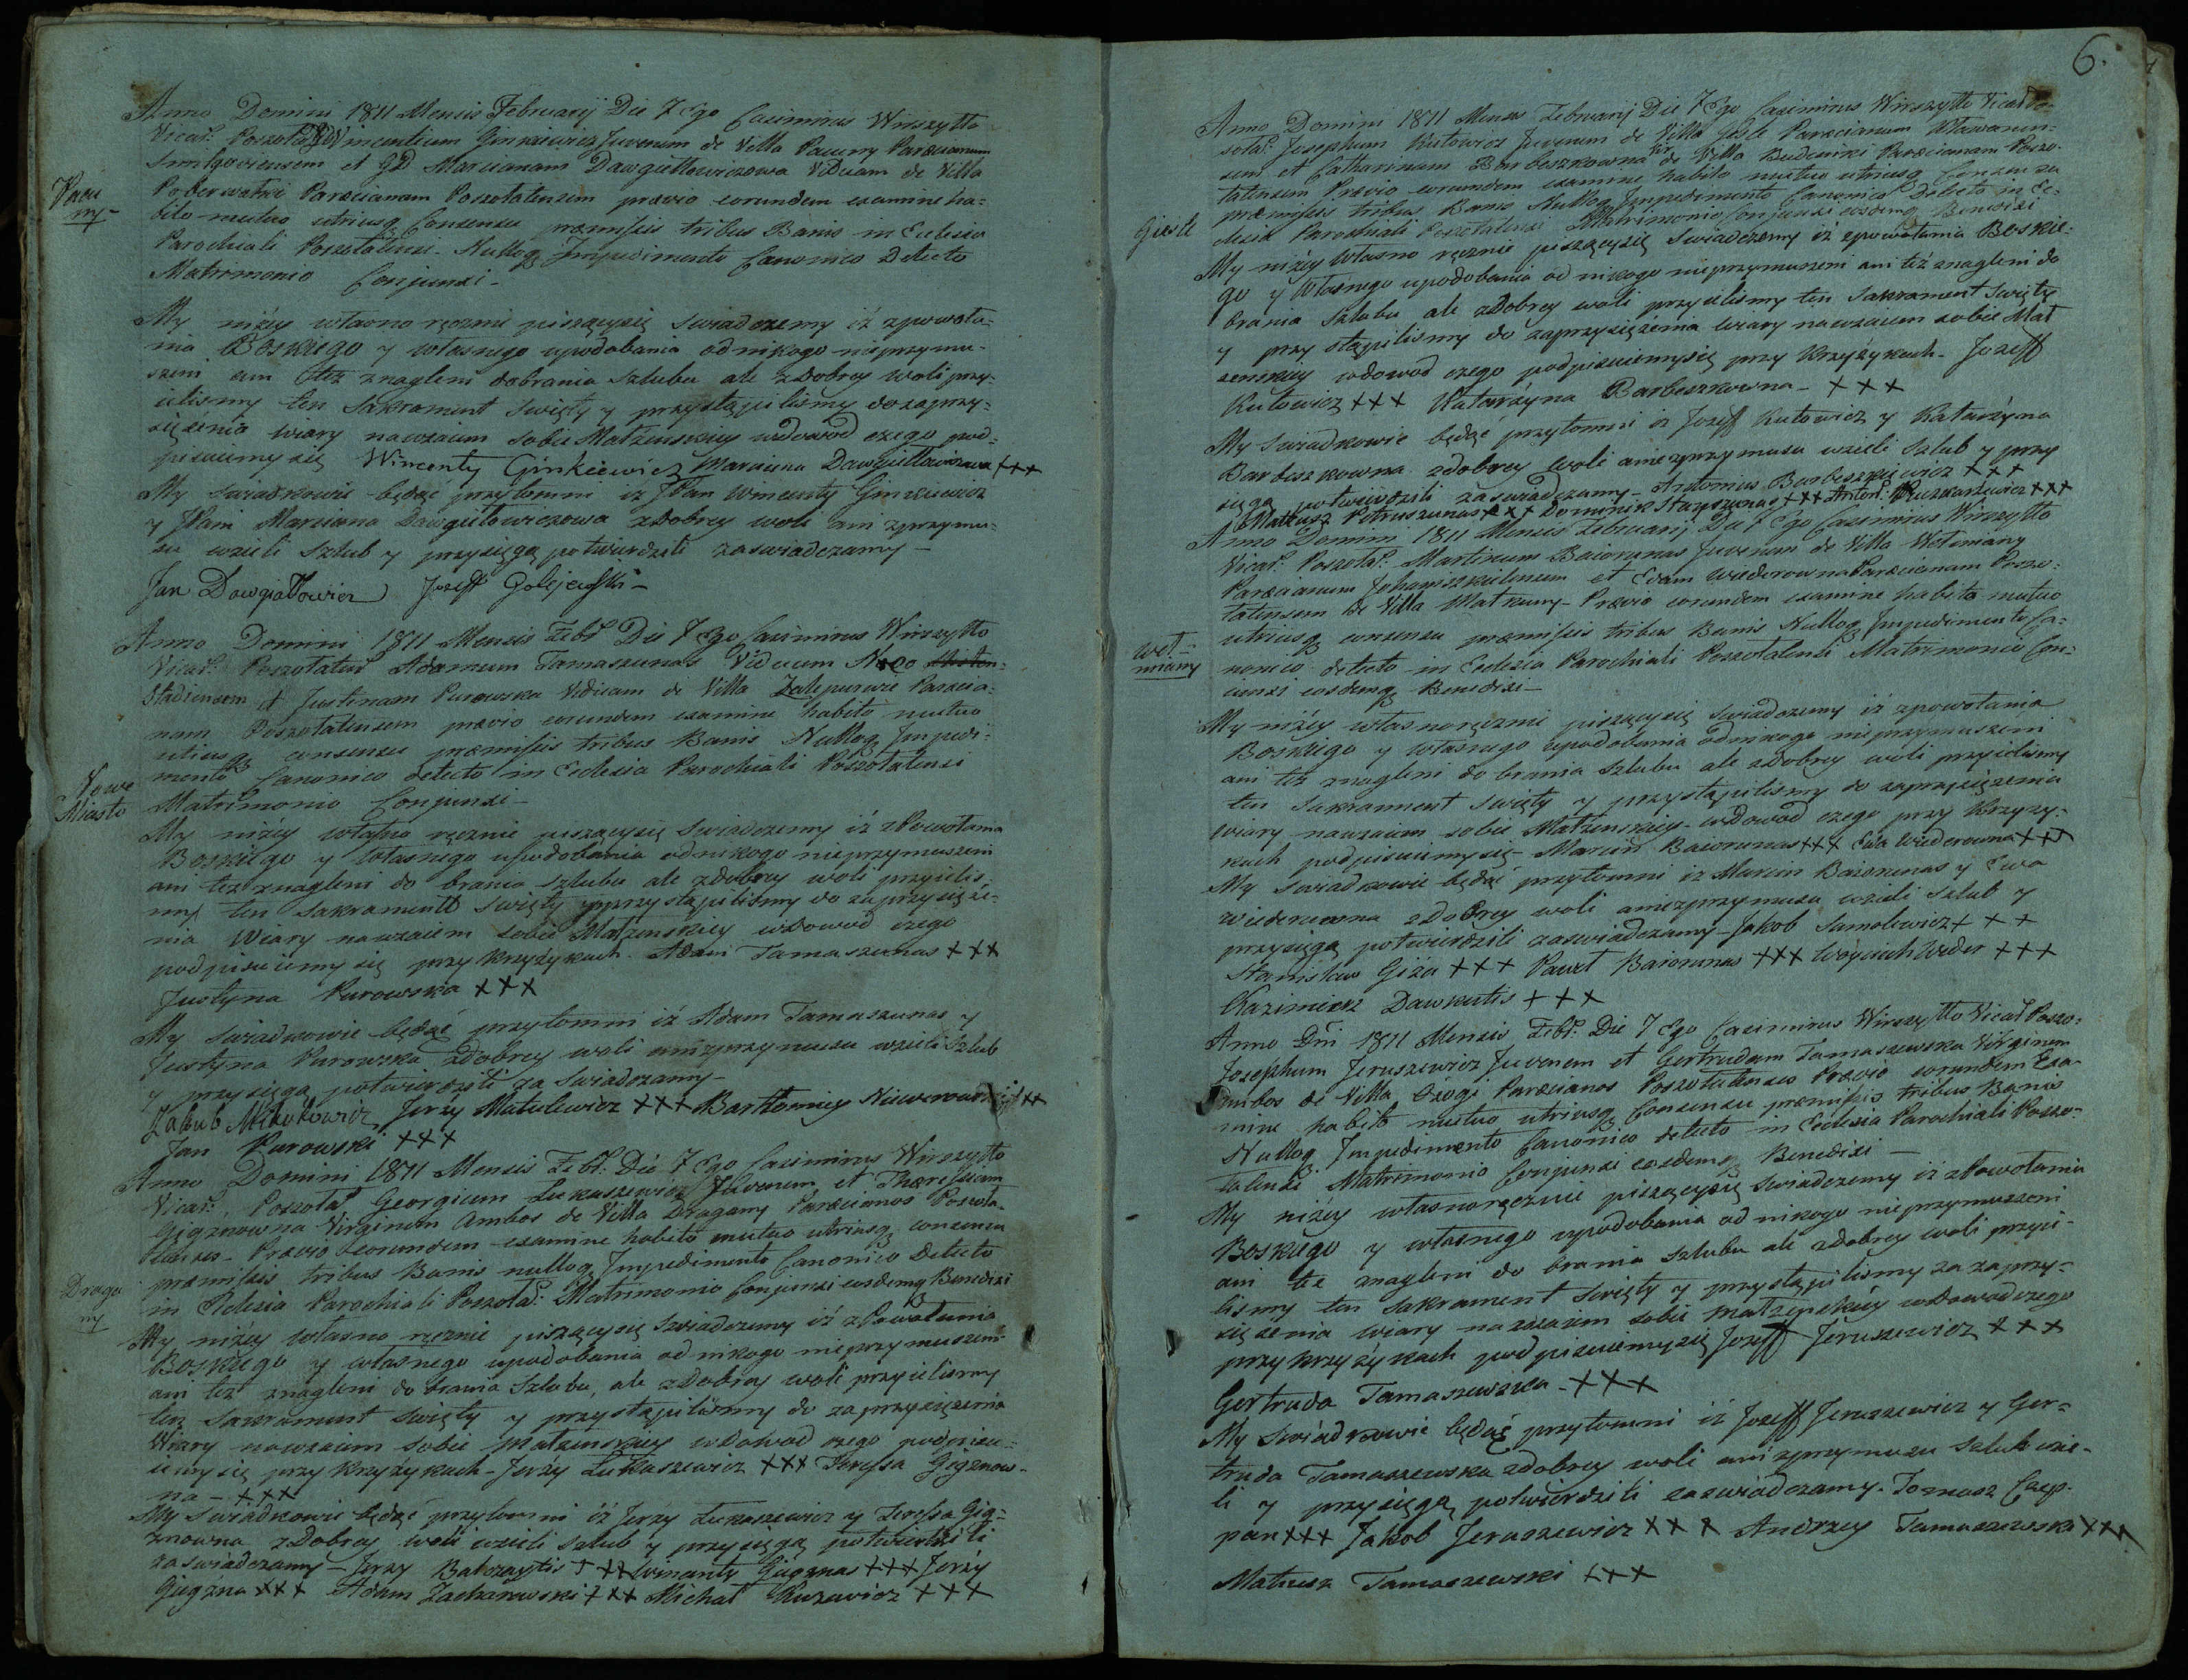 Anno Domini 1811 Mensis Februarij Die 7 Ego Casimirus Wirszytto
Vicar: Poszola: GD Vincentium Ginkiewicz Juvenem de Villa Pacuny Paraecianum
Smilgoviensem et GD Marcianam Dawgiettowiczowa Viduam de Villa
Paraecianam Poszolatensem praevio eorundem examine ha=
bito mutuo utriusq Consensu praemissis tribus Banis in Eclesia
Parochiali Poszolatensi. Nulloq Impedimento Canonico Detecto
Matrimonio Conjunxi -
My niżey własno ręcznie piszącysię swiadczemy iż zpowoła=
nia Boskiego y własnego upodobania odnikogo nieprzymu=
szeni ani też znagleni dobrania Szlubu ale zdobrey woli przy=
ieliśmy ten Sakrament swięty y przystąpiliśmy dozaprzy=
siężenia wiary nawzaiem sobie Małżenskiey wdowod czego pod=
pisuiemy się Wincenty Ginkiewicz Marcianna Dawgiettowiczowa +++
My swiadkowie będąć przytomni iż JPan Wincenty Ginkiewicz
y JPani Marcianna Dawgiettowiczowa zdobrey woli ani zprzymu=
su wzieli Szlub y przysięgą potwierdzili zaswiadczamy -
Jan Dawgiałłowicz Jozeff Golejewski -
Anno Domini 1811 Mensis Feb: Die 7 Ego Casimirus Wirszytto
Vicar: Poszolaten Adamum Tamaszunas Viduum Novo
Stadiensem et Justinam Purowska Viduam de Villa Zalepurwie Paraecia=
nam Poszolatensem praevio eorundem examine habito mutuo
utriusq consensu praemissis tribus Banis Nulloq Impedi=
mento Canonico detecto in Eclesia Parochiali Poszolatensi
Matrimonio Conjunxi -
My niżey własno ręcznie piszącysię swiadczemy iż zPowołania
Boskiego y własnego upodobania odnikogo nieprzymuszeni
ani też znagleni do brania szlubu ale zdobrey woli przyieliś=
my ten Sakrament swięty y przystąpiliśmy do zaprzysięże=
nia Wiary nawzaiem sobie Małżenskiey wDowod czego
podpisuiemy się przy krzyżykach. Adam Tamaszunas +++
Justyna Purowska +++
My swiadkowie będąć przytomni iż Adam Tamaszunas y
Justyna Purowska zdobrey woli ani zprzymusu wzieli Szlub
y przysięgą potwierdzili za swiadczamy -
Jakub Mikutowicz Jerży Matulewicz +++ Bartłomiey +++
Jan Purowski +++
Anno Domini 1811 Mensis Feb: Die 7 Ego Casimirus Wirszytto
Vicar: Poszola: Georgium Łukaszewicz Juvenem et Theressiam
Gigznowna Virginem Ambos de Villa Dragany Paraecianos Poszola=
tenses - Praevio eorundem examine habito mutuo utriusq consensu
praemissis tribus Banis nulloq Impedimento Canonico Detecto
in Eclesia Parochiali Poszola: Matrimonio Conjunxi eosdemq Benedixi
My niżey własno ręcznie piszącysię swiadczemy iż zPowołania
Boskiego y własnego upodobania od nikogo nieprzymuszeni
ani też znagleni do brania Szlubu, ale zdobrey woli przyieliśmy
ten Sakrament swięty y przystąpiliśmy do zaprzysiężenia
Wiary nawzaiem sobie małzenskiey wdowod czego podpisu=
iemy się przy krzyżykach - Jerży Łukaszewicz +++ Teressa Gigznow=
na - +++
My Swiadkowie będąć przytomni iż Jerży Łukaszewicz y Teressa Gig=
znowna zdobrey woli wzieli szlub y przysięgą potwierdzili
zaswiadczamy - Jerzy Balczaytis +++ Wincenty Gigznas +++ Jerży
Gigżna +++ Adam Zacharewski +++ Michał Kuzewicz +++
Pacu
ny -
Nowe
Miasto
Draga
ny
6.
Anno Domini 1811 Mensis Februarij Die 7 Ego Casimirus Wirszytto Vicar: Po=
szola: Josephum Kutowicz Juvenem de Villa Gieśle Paraecianum Wławanen=
sem et Catharinam Barbeszkowna Vir: de Villa Budeniki Paraecianam Poszo=
latensem Praevio eorundem examine habito mutuo utriusq Consensu
praemissis tribus Banis Nulloq Impedimento Canonico Detecto in Ec=
clesia Parochiali Poszolatensi Matrimonio Conjunxi eosdemq Benedixi
My niżey własno ręcznie piszącysię Swiadczemy iż zpowołania Boskie=
go y własnego upodobania od nikogo nieprzymuszeni ani też znagleni do
brania Szlubu ale zdobrey woli przyieliśmy ten Sakrament Swięty
y przystąpiliśmy do zaprzysiężenia wiary nawzaiem sobie Mał
zenskiey wdowod czego podpisuiemysię przy krzyżykach - Jozeff
Kutowicz +++ Katarżyna Barbeszkowna - +++
My swiadkowie będąć przytomni iż Jozeff Kutowicz y Katarżyna
Barbeszkowna zdobrey woli aniezprzymusu wzieli Szlub y przy
sięgą potwierdzili zaswiadczamy - Antonius Barbeszkiewicz +++
Mateusz Petruszunas +++ Dominik Staryszunas +++ Anton: +++
Anno Domini 1811 Mensis Februarij Die 7 Ego Casimirus Wirszytto
Vicar: Poszola: Martinum Baiorunas Juvenem de Villa Wołmiany
Paraecianum Johaniszkielensem et Evam Wiederowna Paraecianam Poszo=
latensem de Villa Matkuny - Praevio eorundem examine habito mutuo
utriusq consensu praemissis tribus Banis Nulloq Impedimento Ca=
nonico detecto in Eclesia Parochiali Poszolatensi Matrimonio Con=
iunxi eosdemq Benedixi -
My niżey własnoręcznie piszącysię swiadczemy iż zpowołania
Boskiego y własnego upodobania odnikogo nieprzymuszeni
ani też znagleni do brania szlubu ale zdobrey woli przyieliśmy
ten Sakrament swięty y przystąpiliśmy do zaprzysiężenia
wiary nawzaiem sobie Małżenskiey - wdowod czego przy krzyży=
kach podpisuiemysię - Marcin Baiorunas +++ Ewa Wiederowna +++
My swiadkowie będąć przytomni iż Marcin Baiorunas y Ewa
Wiederowna zdobrey woli aniezprzymusu wzieli szlub y
przysięgą potwierdzili zaswiadczamy - Jakob Samolewicz +++
Stanisław Giża +++ Paweł Baiorunas +++ Woyciech Weder +++
Kazimierz Dawkutis +++
Anno Dni 1811 Mensis Feb: Die 7 Ego Casimirus Wirszytto Vicar Poszo:
Josephum Jeruszewicz Juvenem et Gertrudam Tamaszewska Virginem
Ambos de Villa Paraecianos Poszolatenses Praevio eorundem Exa=
mine habito mutuo utriusq Consensu praemissis tribus Banis
Nulloq Impedimento Canonico detecto in Eclesia Parochiali Poszo=
latensi Matrimonio Conjunxi eosdemq Benedixi -
My niżey własnoręcznie piszącysię swiadczemy iż zPowołania
Boskiego y własnego upodobania od nikogo nieprzymuszeni
ani też znagleni do brania szlubu ale zdobrey woli przyie=
liśmy ten Sakrament swięty y przystąpiliśmy za zaprzy=
siężenia wiary nawzaiem sobie małżenskiey wdowod czego
przy krzyżykach podpisuiemysię Jozeff Jeruszewicz +++
Gertruda Tamaszewska - +++
My swiadkowie będąć przytomni iż Jozeff Jeruszewicz y Ger=
truda Tamaszewska zdobrey woli ani zprzymusu szlub wzie=
li y przysięgą potwierdzili zaswiadczamy. Tomasz Czep=
pan +++ Jakob Jeruszewicz +++ Andrzey Tamaszewski +++
Mateusz Tamaszewski +++
Gieśle
Woł=
miany